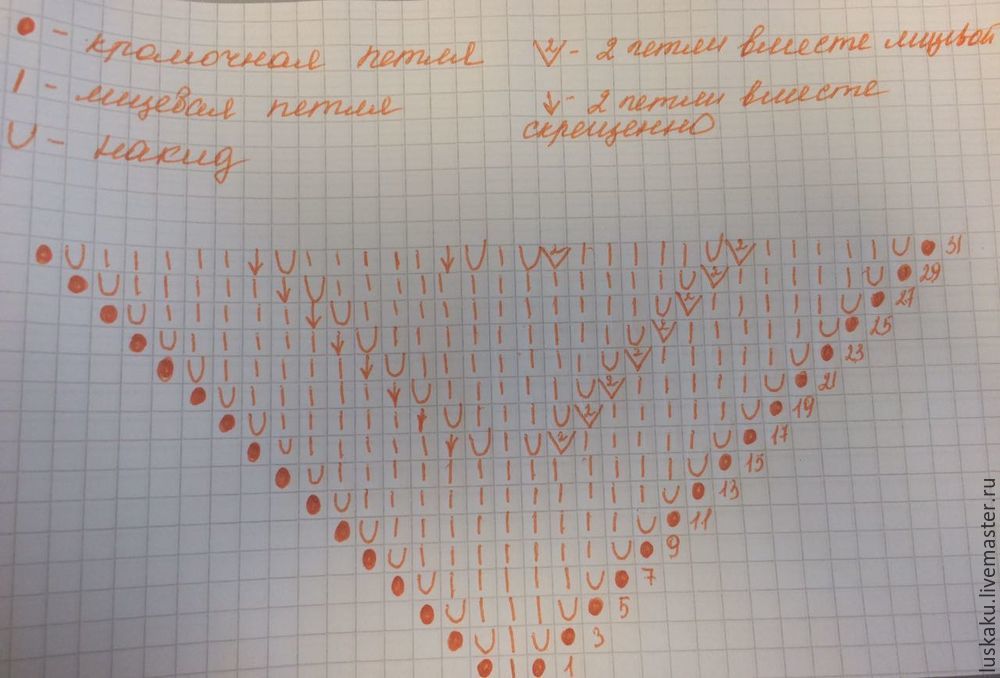 ● - кромочная петля
| - лицевая петля
U - накид
2 - 2 петли вместе лицевой
↓ - 2 петли вместе
скрещенно
31
29
27
25
23
21
19
17
15
13
11
9
7
5
3
1
luskaku.livemaster.ru